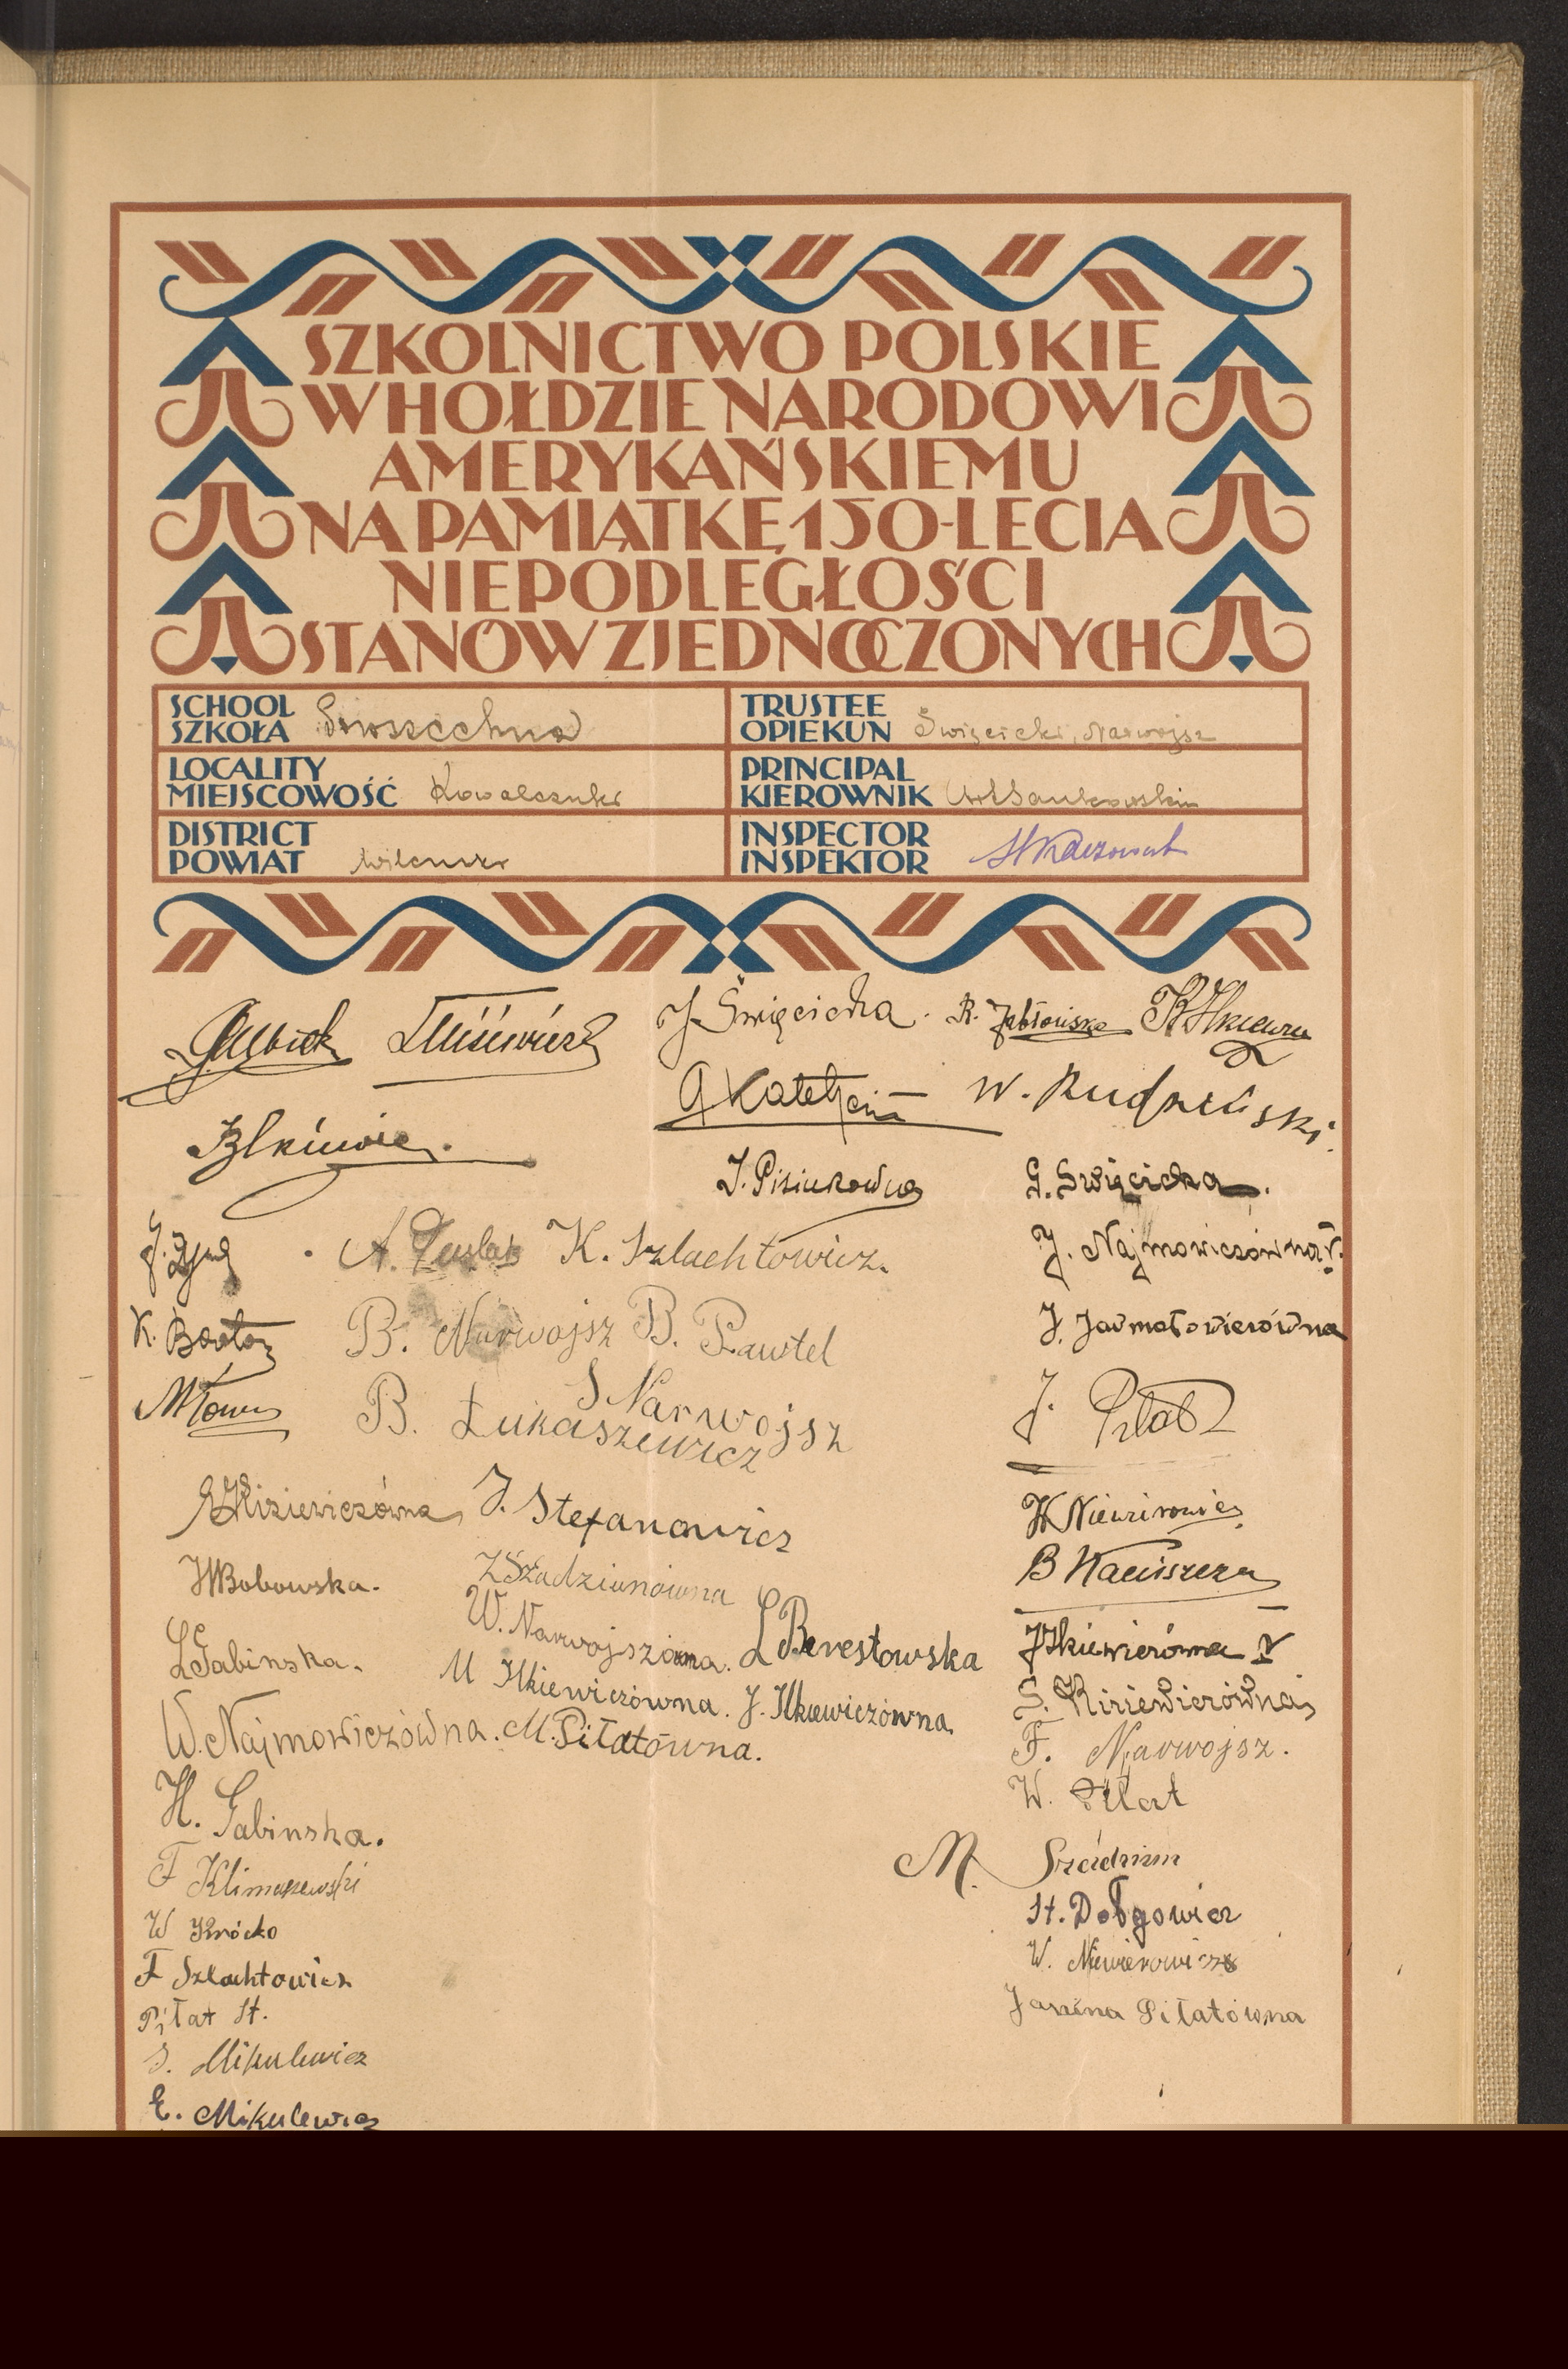 SZKOLNICTWO POLSKIE
W HOŁDZIE NARODOWI
AMERYKAŃSKIEMU
NA PAMIĄTKĘ 150-LECIA
NIEPODLEGŁOŚCI
STANÓW ZJEDNOCZONYCH
SCHOOL
SZKOŁA Powszechna
TRUSTEE
OPIEKUN Święcicki, Narwojsz
LOCALITY
MIEJSCOWOŚĆ Kowalczuki
PRINCIPAL
KIEROWNIK
DISTRICT
POWIAT
INSPECTOR
INSPEKTOR
J. Święcicka. R. Jabłońska
W. Rudziński.
J. Pisiukowna
G. Swięcicka.
A. K. Szlachtowicz.
J. Najmowiczówna V.
K.
B. Narwojsz B. Pawtel
J. Jarmołowiczówna
S Narwojsz
B. Łukaszewicz
J. Piłat
Kiziewiczówna J. Stefanowicz
W Niewirowicz
Bobowska.
Z Szadziunówna
B
W. Narwojszówna. L Berestowska
J Ilkiewiczówna V
L Gabinska.
M Ilkiewiczówna. J. Ilkiewiczówna
S. Kiziewiczówna
W. Najmowiczówna. M. Piłatówna.
F. Narwojsz.
W. Piłat
H. Gabinska.
M.
F Klimaszewski
St. Dołgowicz
W
W. Niewierowicz
F Szlachtowicz
Janina Piłatówna
Piłat St.
S. Mikulewicz
E. Mikulewicz